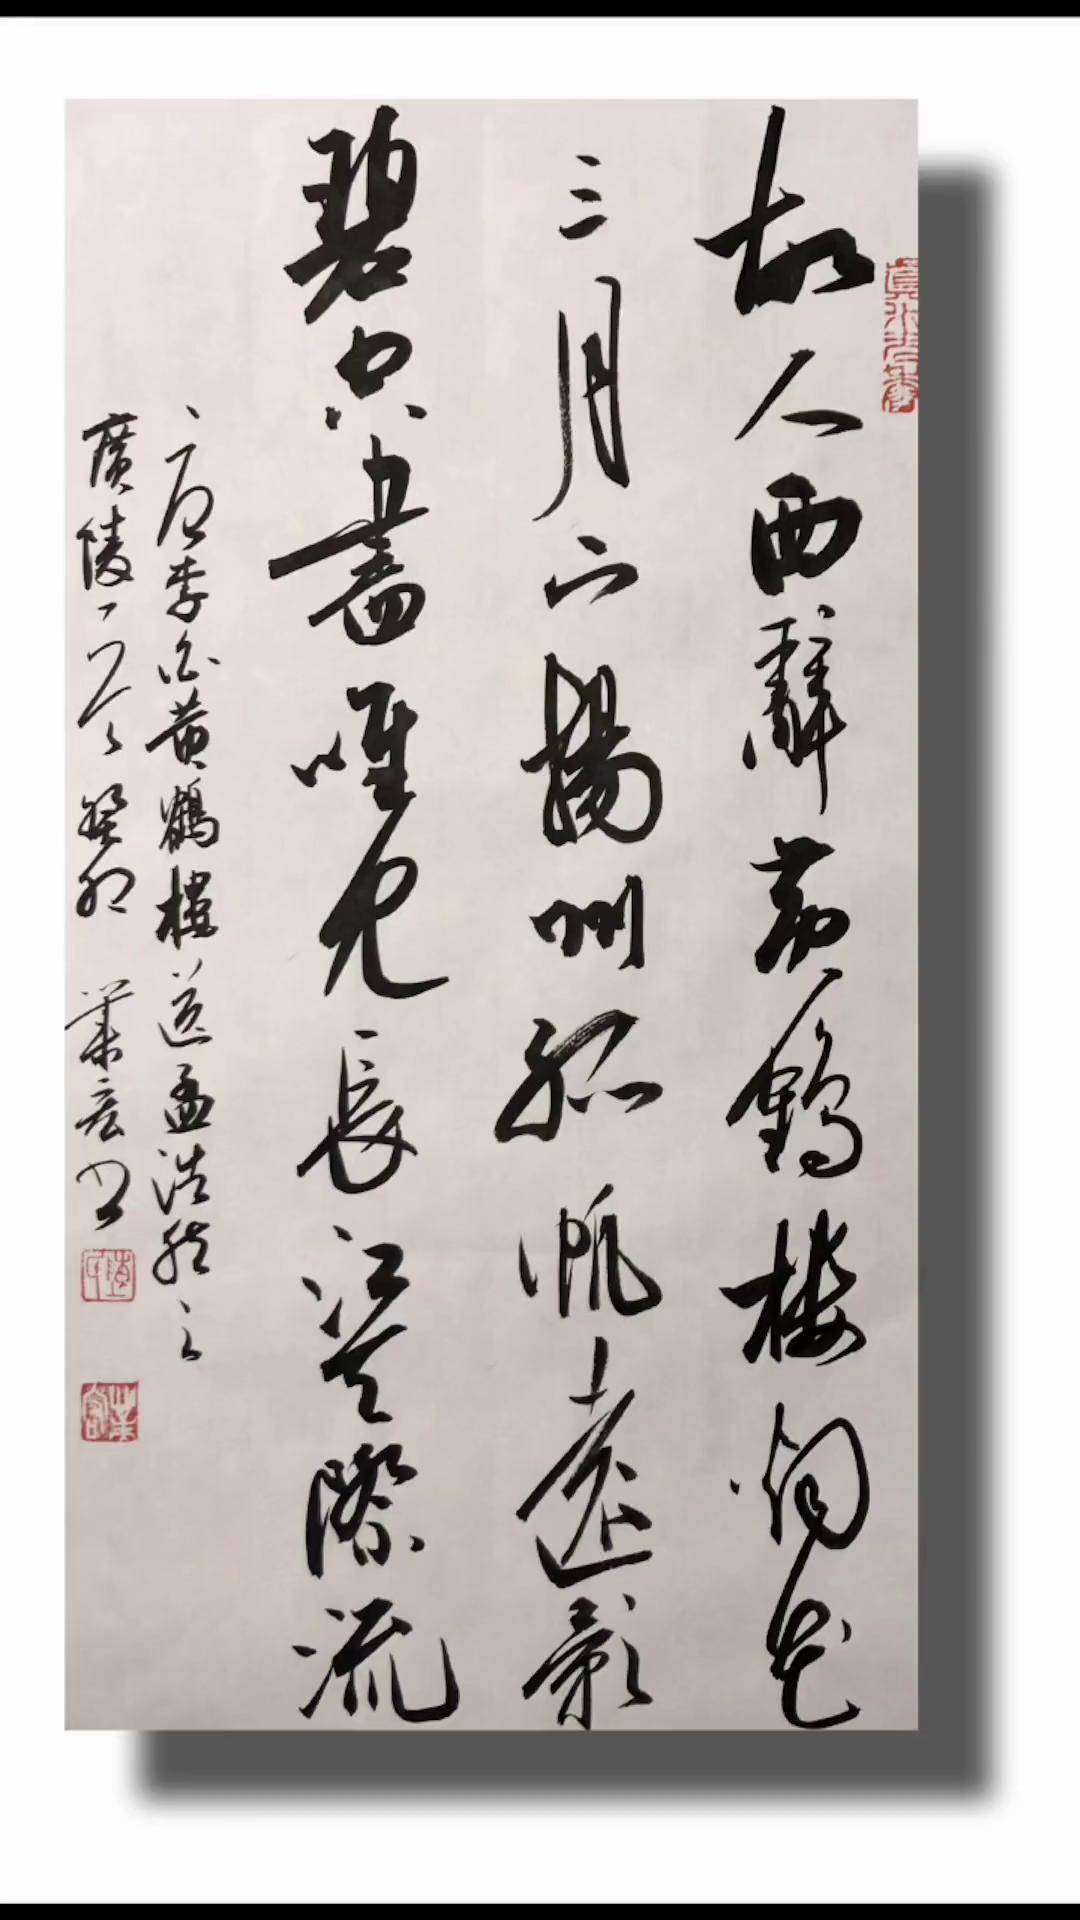 故人西辭黄鶴楼烟花
三月下揚州孤帆遠影
碧空盡唯見長江天際流
唐李白黄鶴樓送孟浩然之
廣陵一首癸卯葉宏書